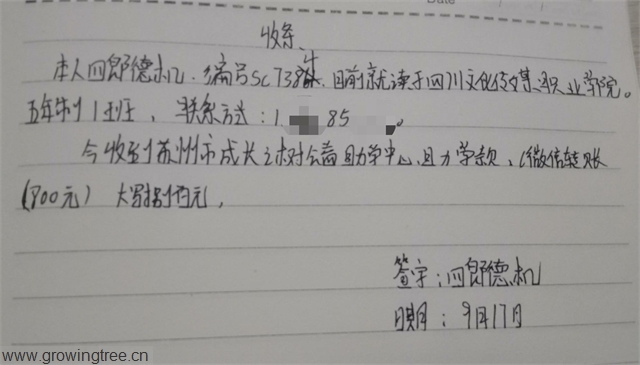 收条
本人四郎德机.编号SC738,目前就读于四川文化传媒职业学院。
五年制1班,联系方式:1.85。
今收到苏州市成长之树公益助学中心,助学款,(微信转账
(800元)大写捌佰元,
签字:四郎德机
日期:9月17日
www.growingtree.cn
Date